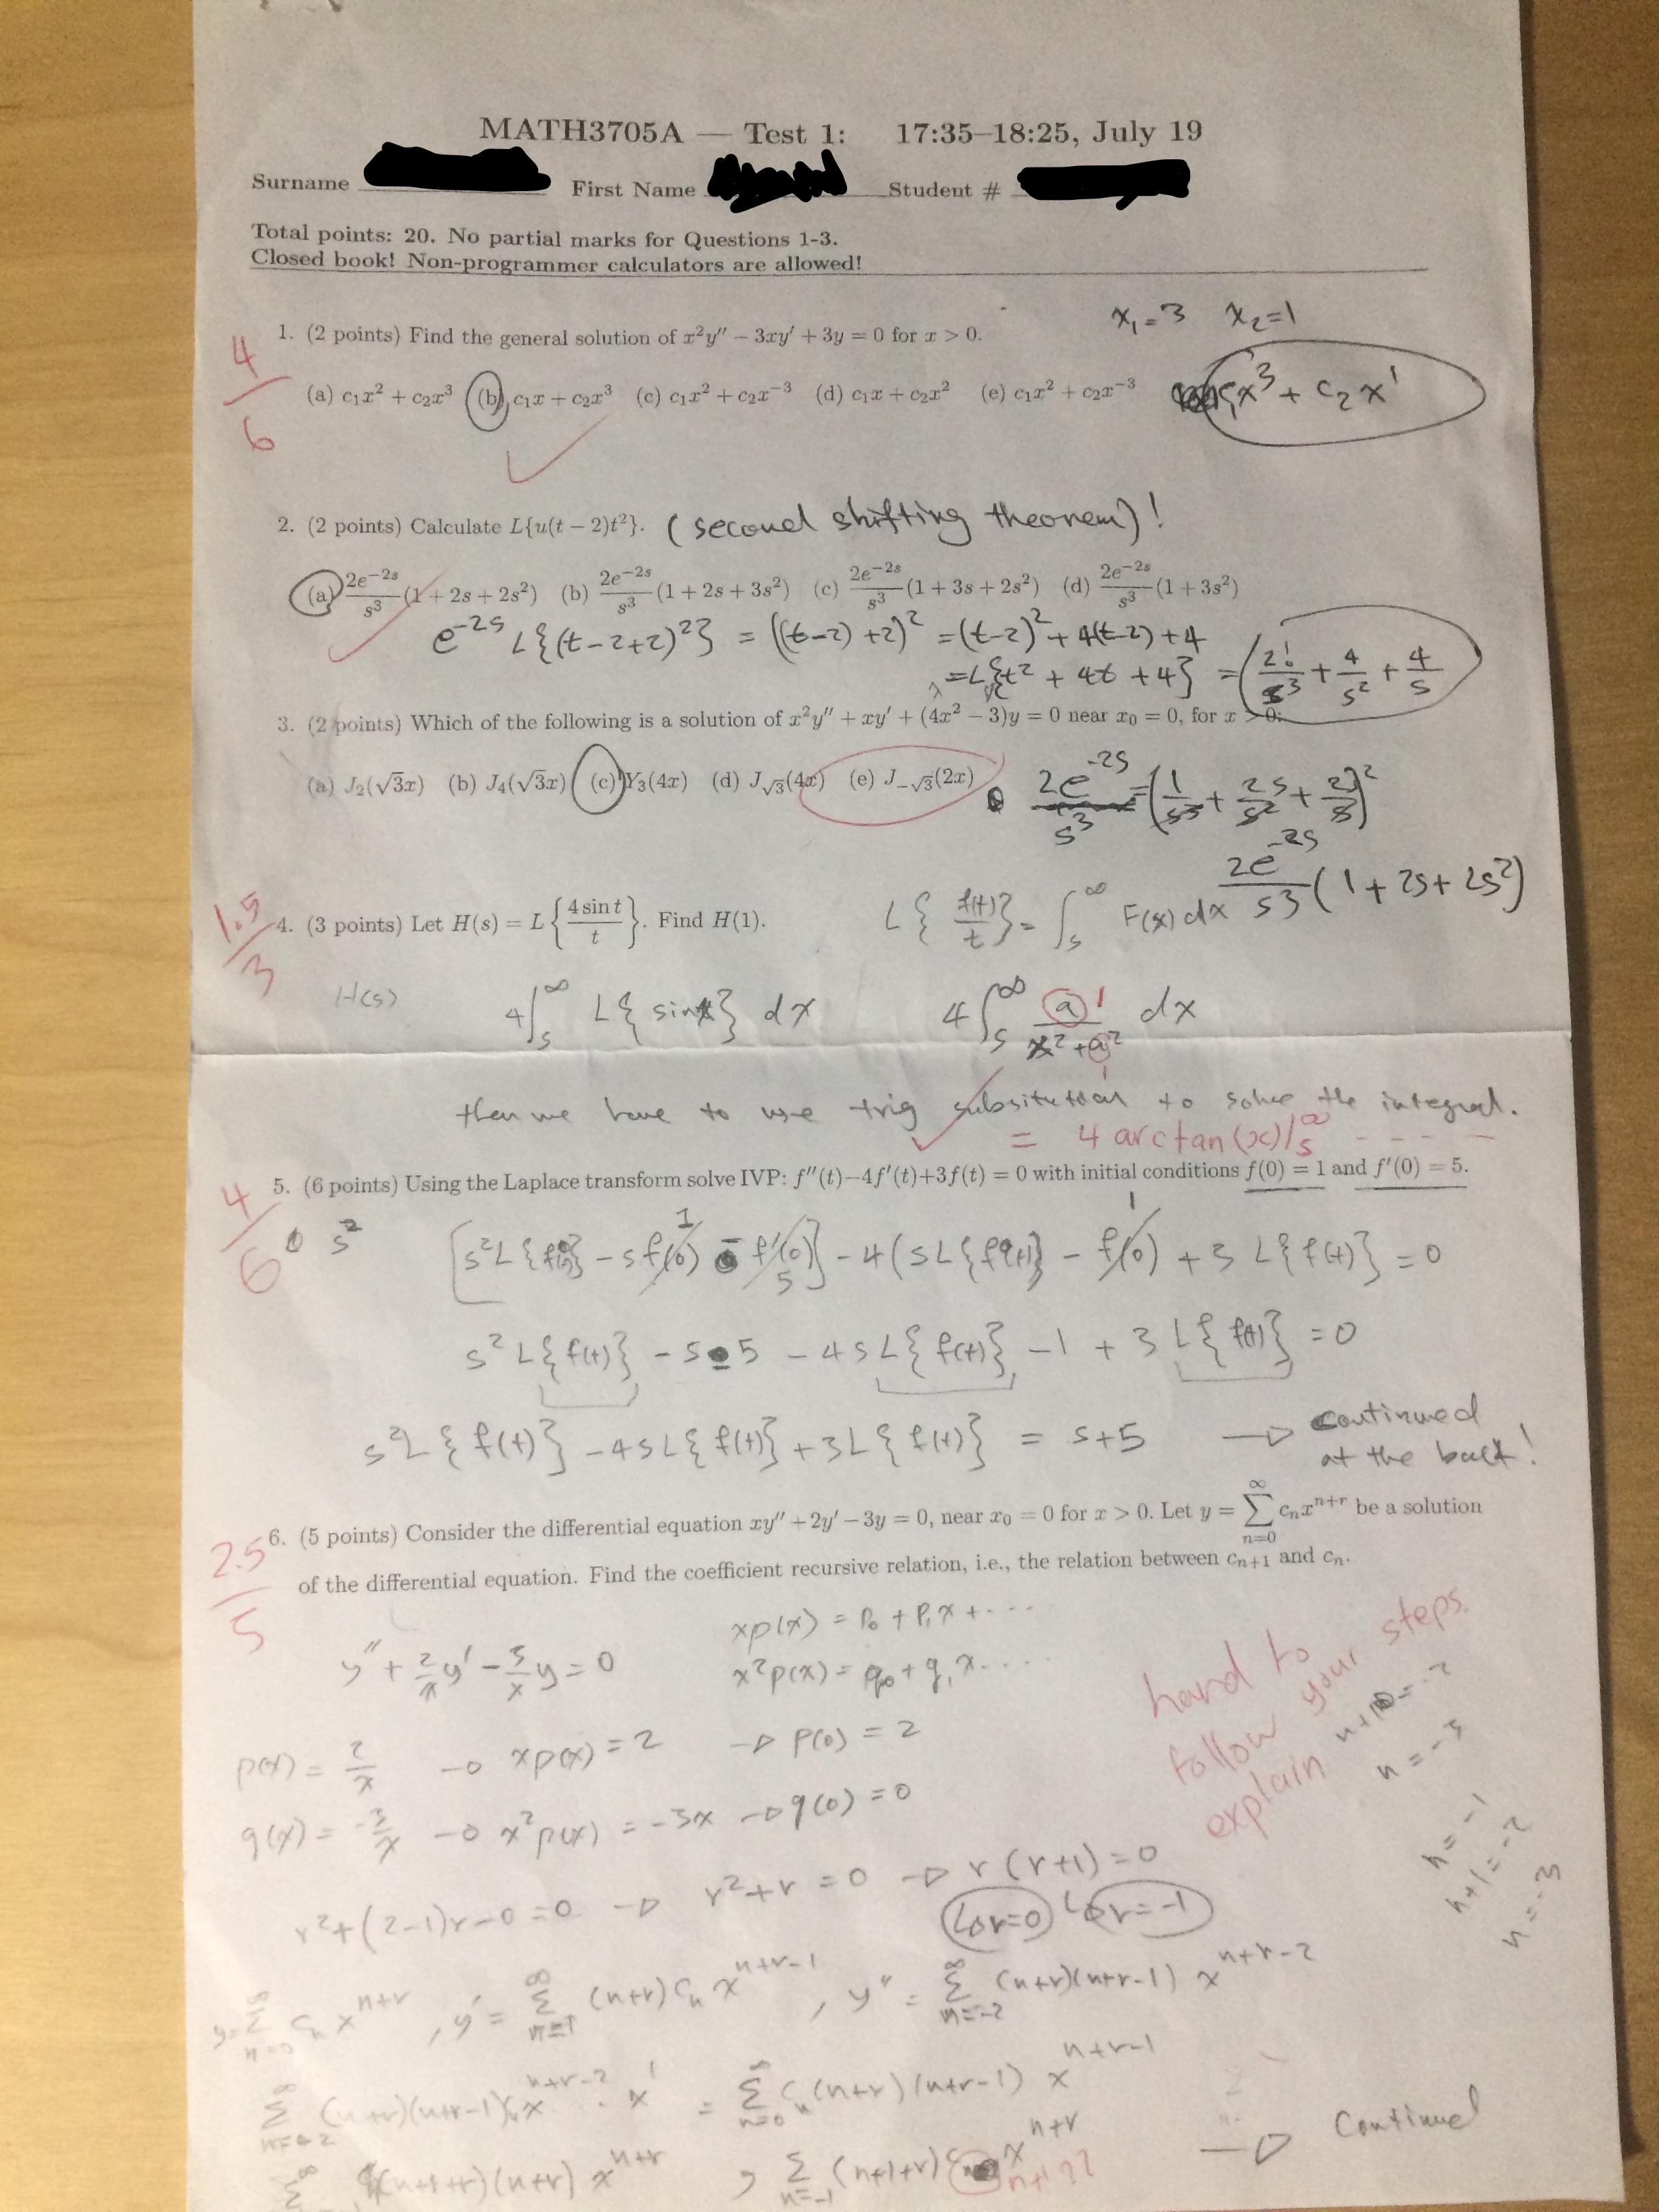 MATH3705A — Test 1: 17:35–18:25, July 19
Surname First Name Student #
Total points: 20. No partial marks for Questions 1-3.
Closed book! Non-programmer calculators are allowed!
x₁=3 x₂=1
4/6
1. (2 points) Find the general solution of x²y″ − 3xy′ + 3y = 0 for x > 0.
(a) c₁x² + c₂x³ (b) c₁x + c₂x³ (c) c₁x² + c₂x⁻³ (d) c₁x + c₂x² (e) c₁x² + c₂x⁻³
c₁x³ + c₂x¹
2. (2 points) Calculate L{u(t − 2)t²}. (second shifting theorem)!
(a) 2e^{−2s}/s³ (1 + 2s + 2s²) (b) 2e^{−2s}/s³ (1 + 2s + 3s²) (c) 2e^{−2s}/s³ (1 + 3s + 2s²) (d) 2e^{−2s}/s³ (1 + 3s²)
e^{-2s} L{(t-2+2)²} = ((t-2)+2)² = (t-2)² + 4(t-2) + 4
= L{t² + 4t + 4} = (2!/s³ + 4/s² + 4/s)
3. (2 points) Which of the following is a solution of x²y″ + xy′ + (4x² − 3)y = 0 near x₀ = 0, for x > 0:
(a) J₂(√3x) (b) J₄(√3x) (c) Y₃(4x) (d) J_{√3}(4x) (e) J_{−√3}(2x)
2e^{-2s}/s³ = (1/s³ + 2s/s² + 2/s)²
2e^{-2s}/s³ (1 + 2s + 2s²)
1.5/3
4. (3 points) Let H(s) = L{4 sin t/t}. Find H(1).
L{f(t)/t} = ∫_s^∞ F(x) dx
H(s)
4∫_s^∞ L{sint} dx 4∫_s^∞ a/(x²+a²) dx
1
1
then we have to use trig subsitution to solve the integral.
= 4 arctan(x)|_s^∞ - - - - -
4/6
5. (6 points) Using the Laplace transform solve IVP: f″(t)−4f′(t)+3f(t) = 0 with initial conditions f(0) = 1 and f′(0) = 5.
s²
[s²L{f(t)} − sf(0) − f′(0)] − 4(sL{f(t)} − f(0) + 3 L{f(t)} = 0
1 5 1
s²L{f(t)} − s − 5 − 4sL{f(t)} − 1 + 3L{f(t)} = 0
s²L{f(t)} − 4sL{f(t)} + 3L{f(t)} = s+5 → continued
at the back!
2.5/5
6. (5 points) Consider the differential equation xy″ + 2y′ − 3y = 0, near x₀ = 0 for x > 0. Let y = Σ_{n=0}^∞ cₙx^{n+r} be a solution
of the differential equation. Find the coefficient recursive relation, i.e., the relation between cₙ₊₁ and cₙ.
xp(x) = p₀ + p₁x + ....
y″ + 2/x y′ − 3/x y = 0 x²p(x) = q₀ + q₁x....
hard to
follow your steps.
explain
p(x) = 2/x → xp(x) = 2 → p(0) = 2
q(x) = -3/x → x²p(x) = −3x → q(0) = 0
n = -3
n = -1
n+1 = -2
n = -3
r² + (2−1)r − 0 = 0 → r² + r = 0 → r(r+1) = 0
r=0 r=-1
y = Σ_{n=0}^∞ cₙ x^{n+r}, y′ = Σ_{n=1}^∞ (n+r) cₙ x^{n+r-1}, y″ = Σ_{n=-2}^∞ (n+r)(n+r-1) x^{n+r-2}
Σ^∞ (n+r)(n+r-1)cₙ x^{n+r-2} · x¹ = Σ_{n=0}^∞ cₙ (n+r)(n+r-1) x^{n+r-1}
Σ^∞ (n+1+r)(n+r) x^{n+r}, Σ_{n=-1} (n+1+r) c x^{n+r} → Continued
n+1??